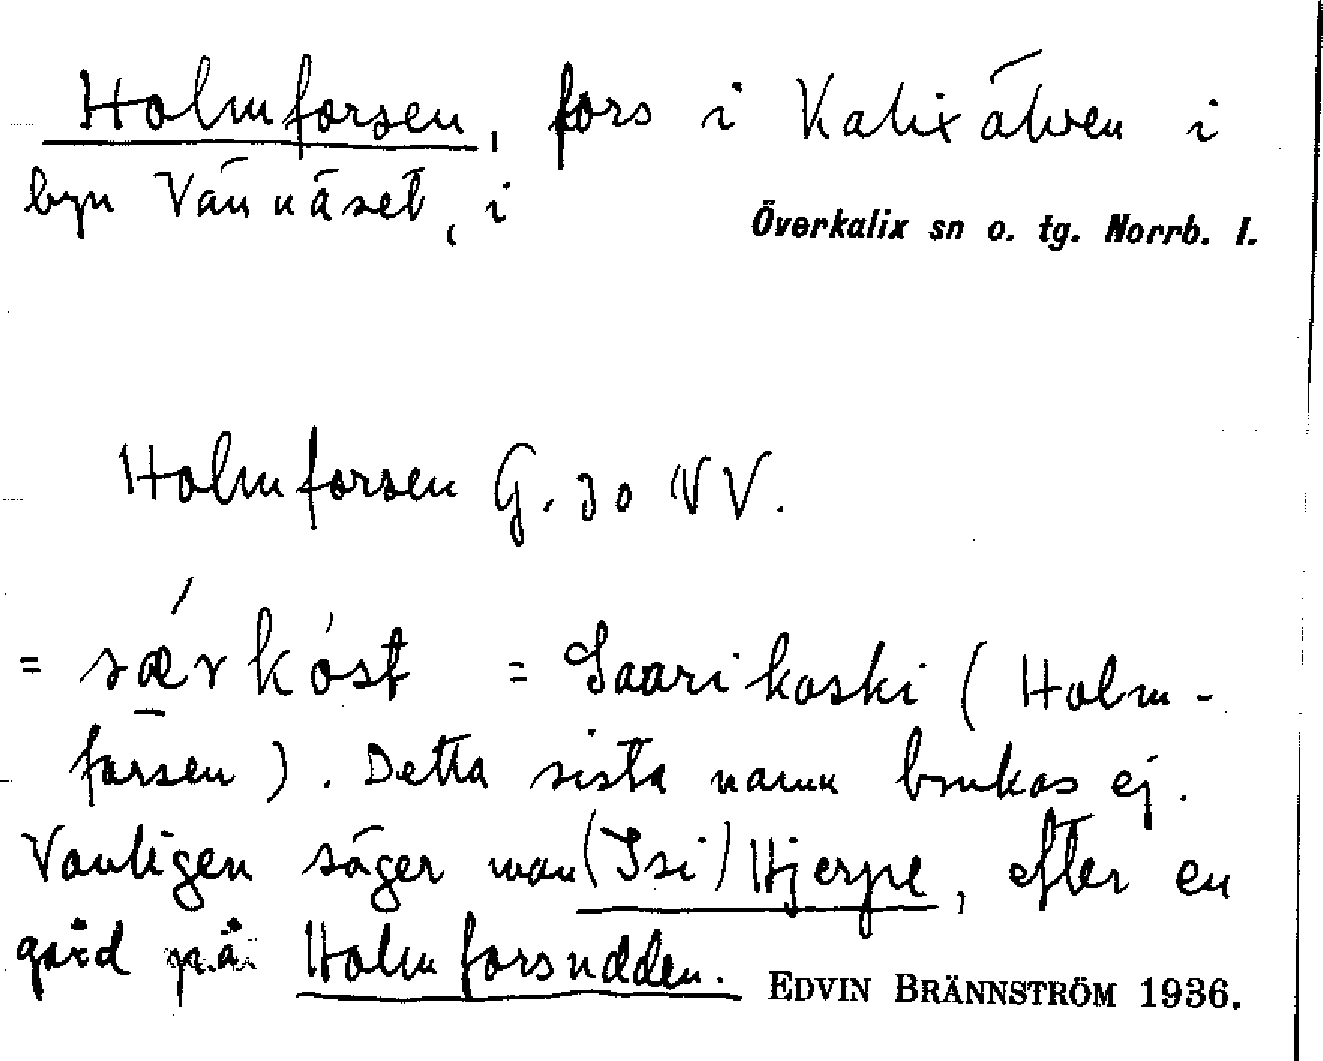 Holmforsen, fors i Kalixälven i
byn Vännäset, i
Överkalix sn o. tg. Norrb. l.
Holmforsen G. 30 NV.
= særkóst = Saarikoski (Holm-
forsen). Detta sista namn brukas ej.
Vanligen säger man (Isi) Hjerpe, efter en
gård på Holmforsudden.
EDVIN BRÄNNSTRÖM 1936.